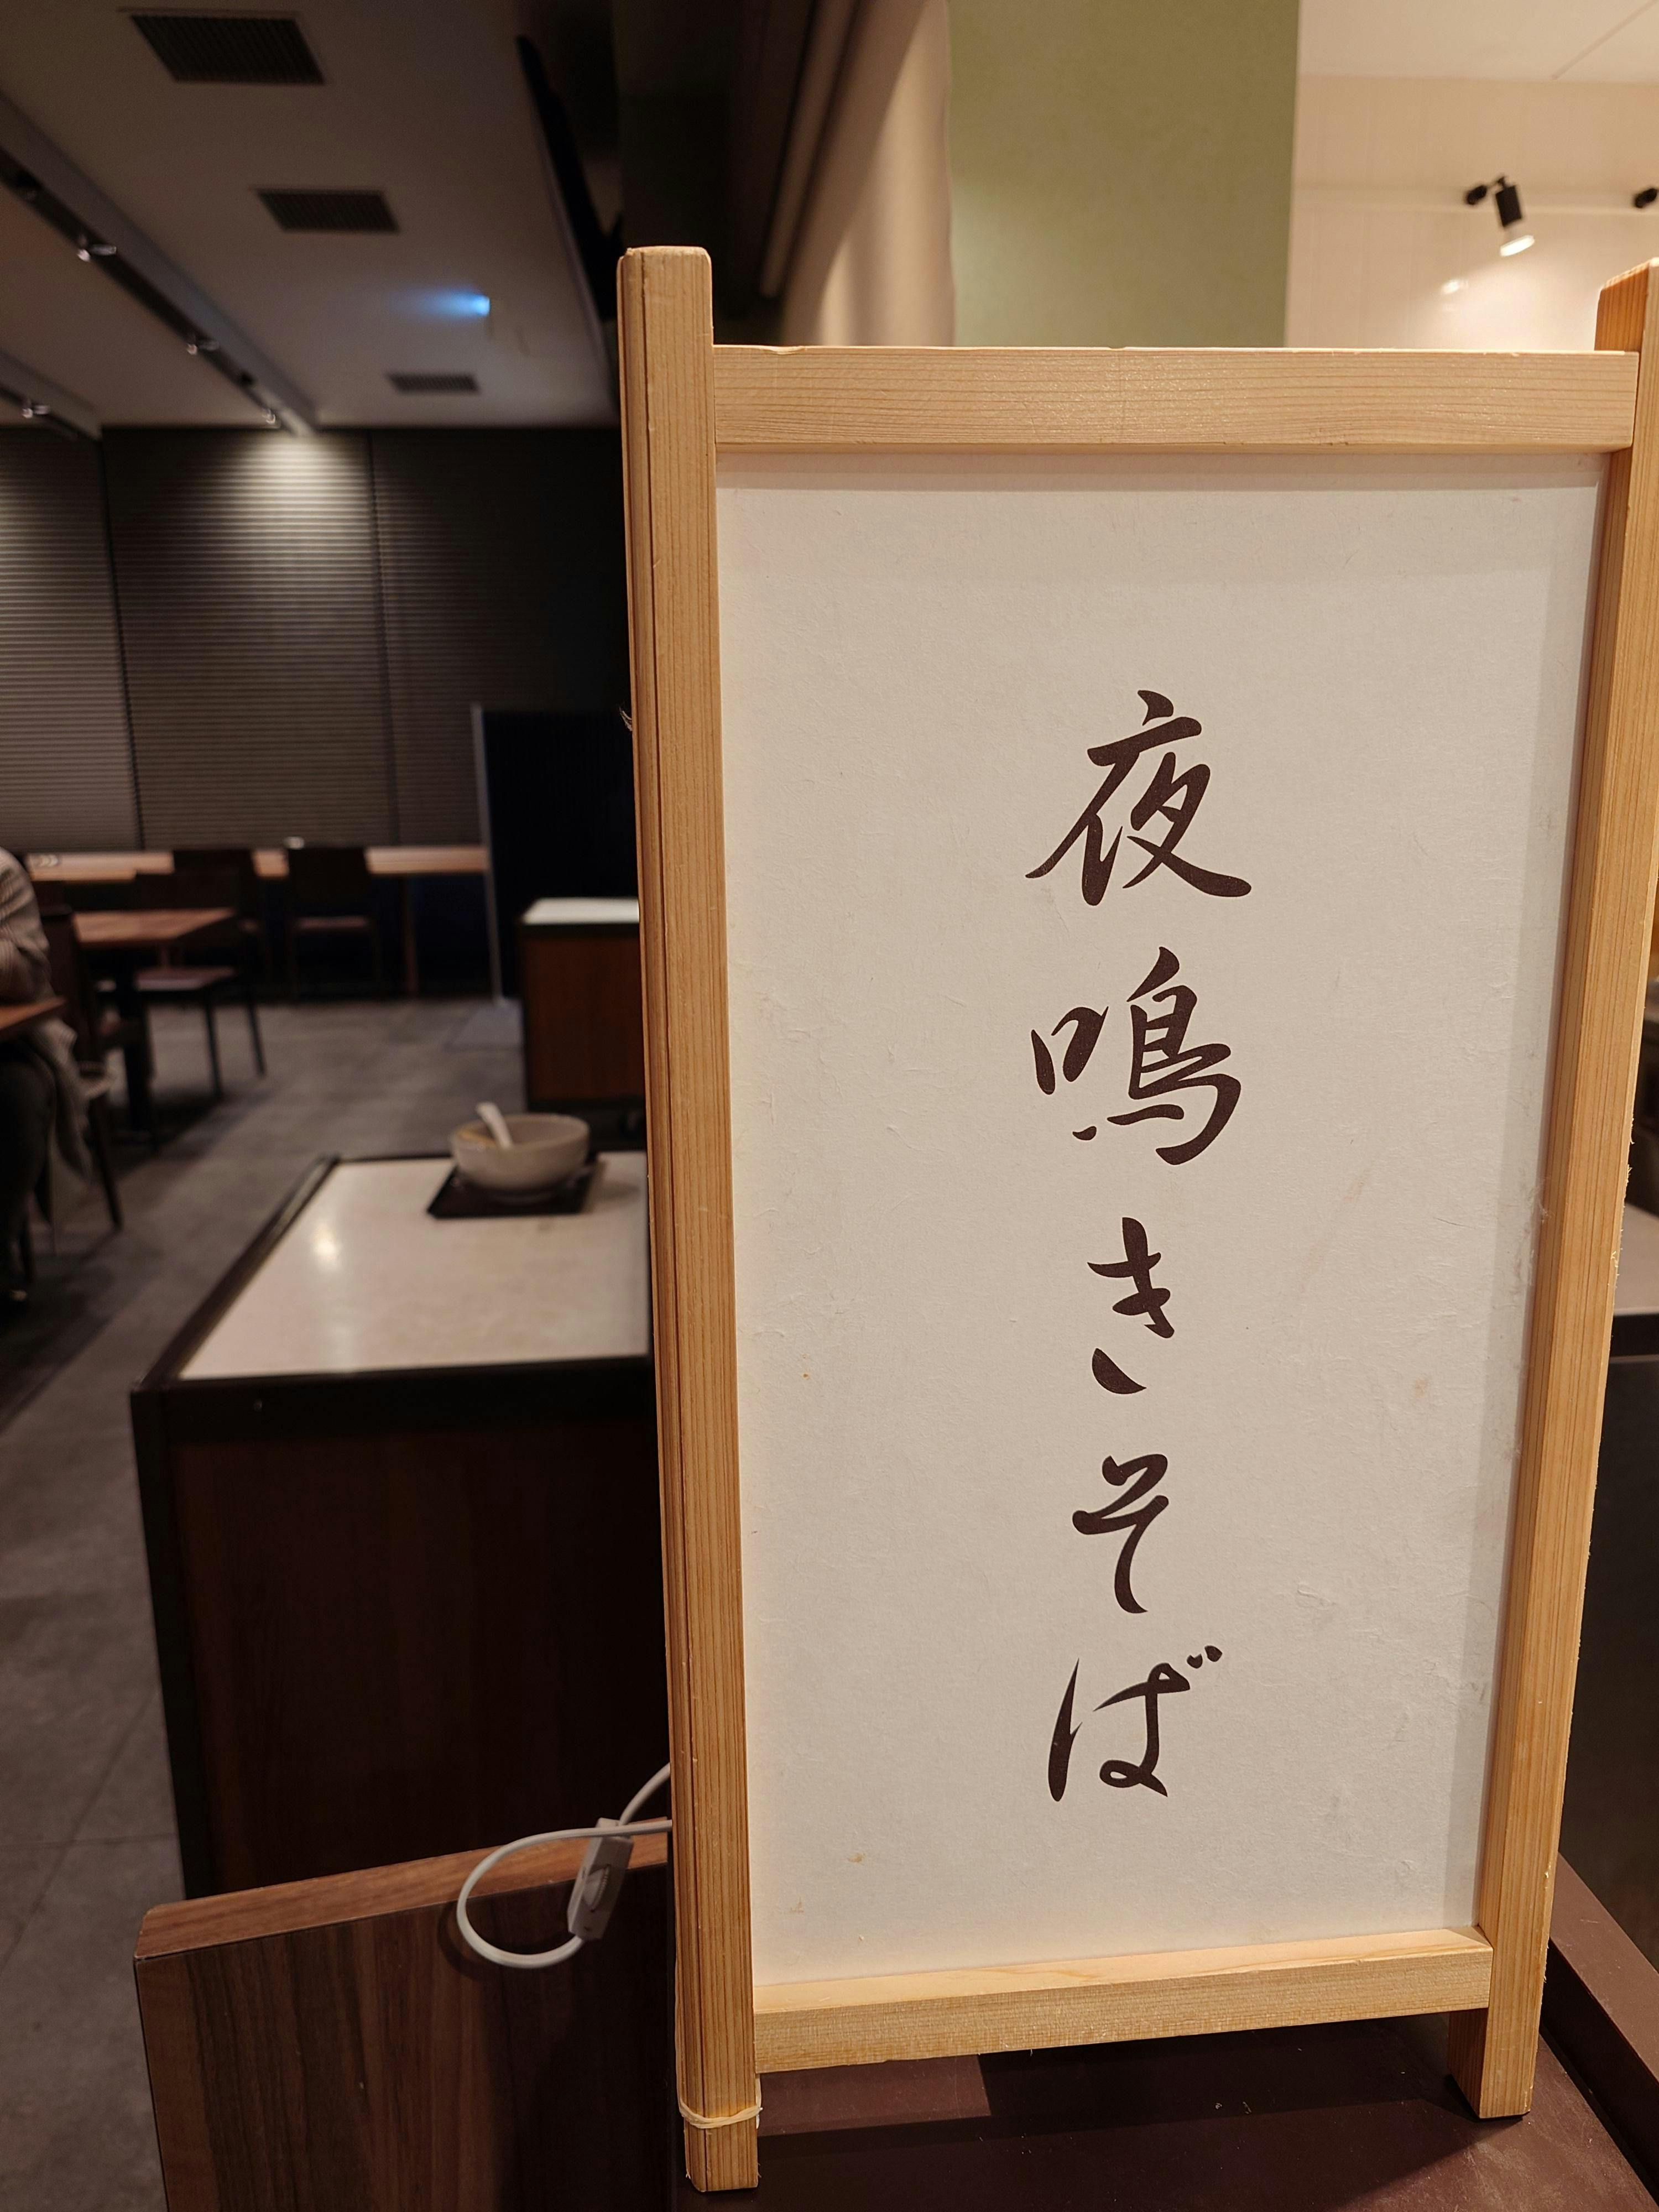 夜鳴きそば